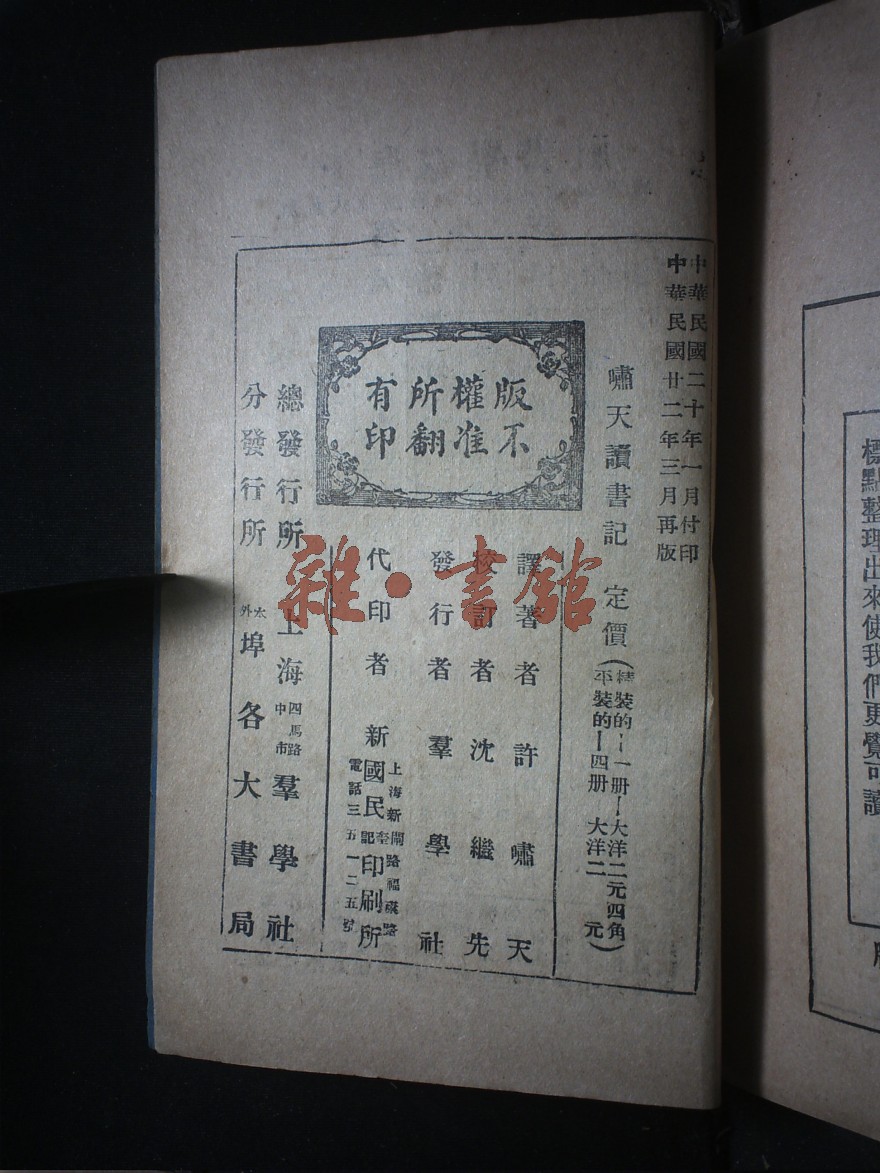 中華民國二十年一月付印
中華民國廿二年三月再版
嘯天讀書記 定價(精裝的--一册--大洋二元四角
平裝的--四册 大洋二元)
版權所有
不准翻印
譯著者 許嘯天
校訂者 沈繼先
發行者 羣學社
代印者 新國民印刷所
上海新閘路福康路
電話三五一二五號
總發行所 上海四馬路中市羣學社
分發行所 外埠各大書局
雜·書館
標點整理出來使我們更覺可讀